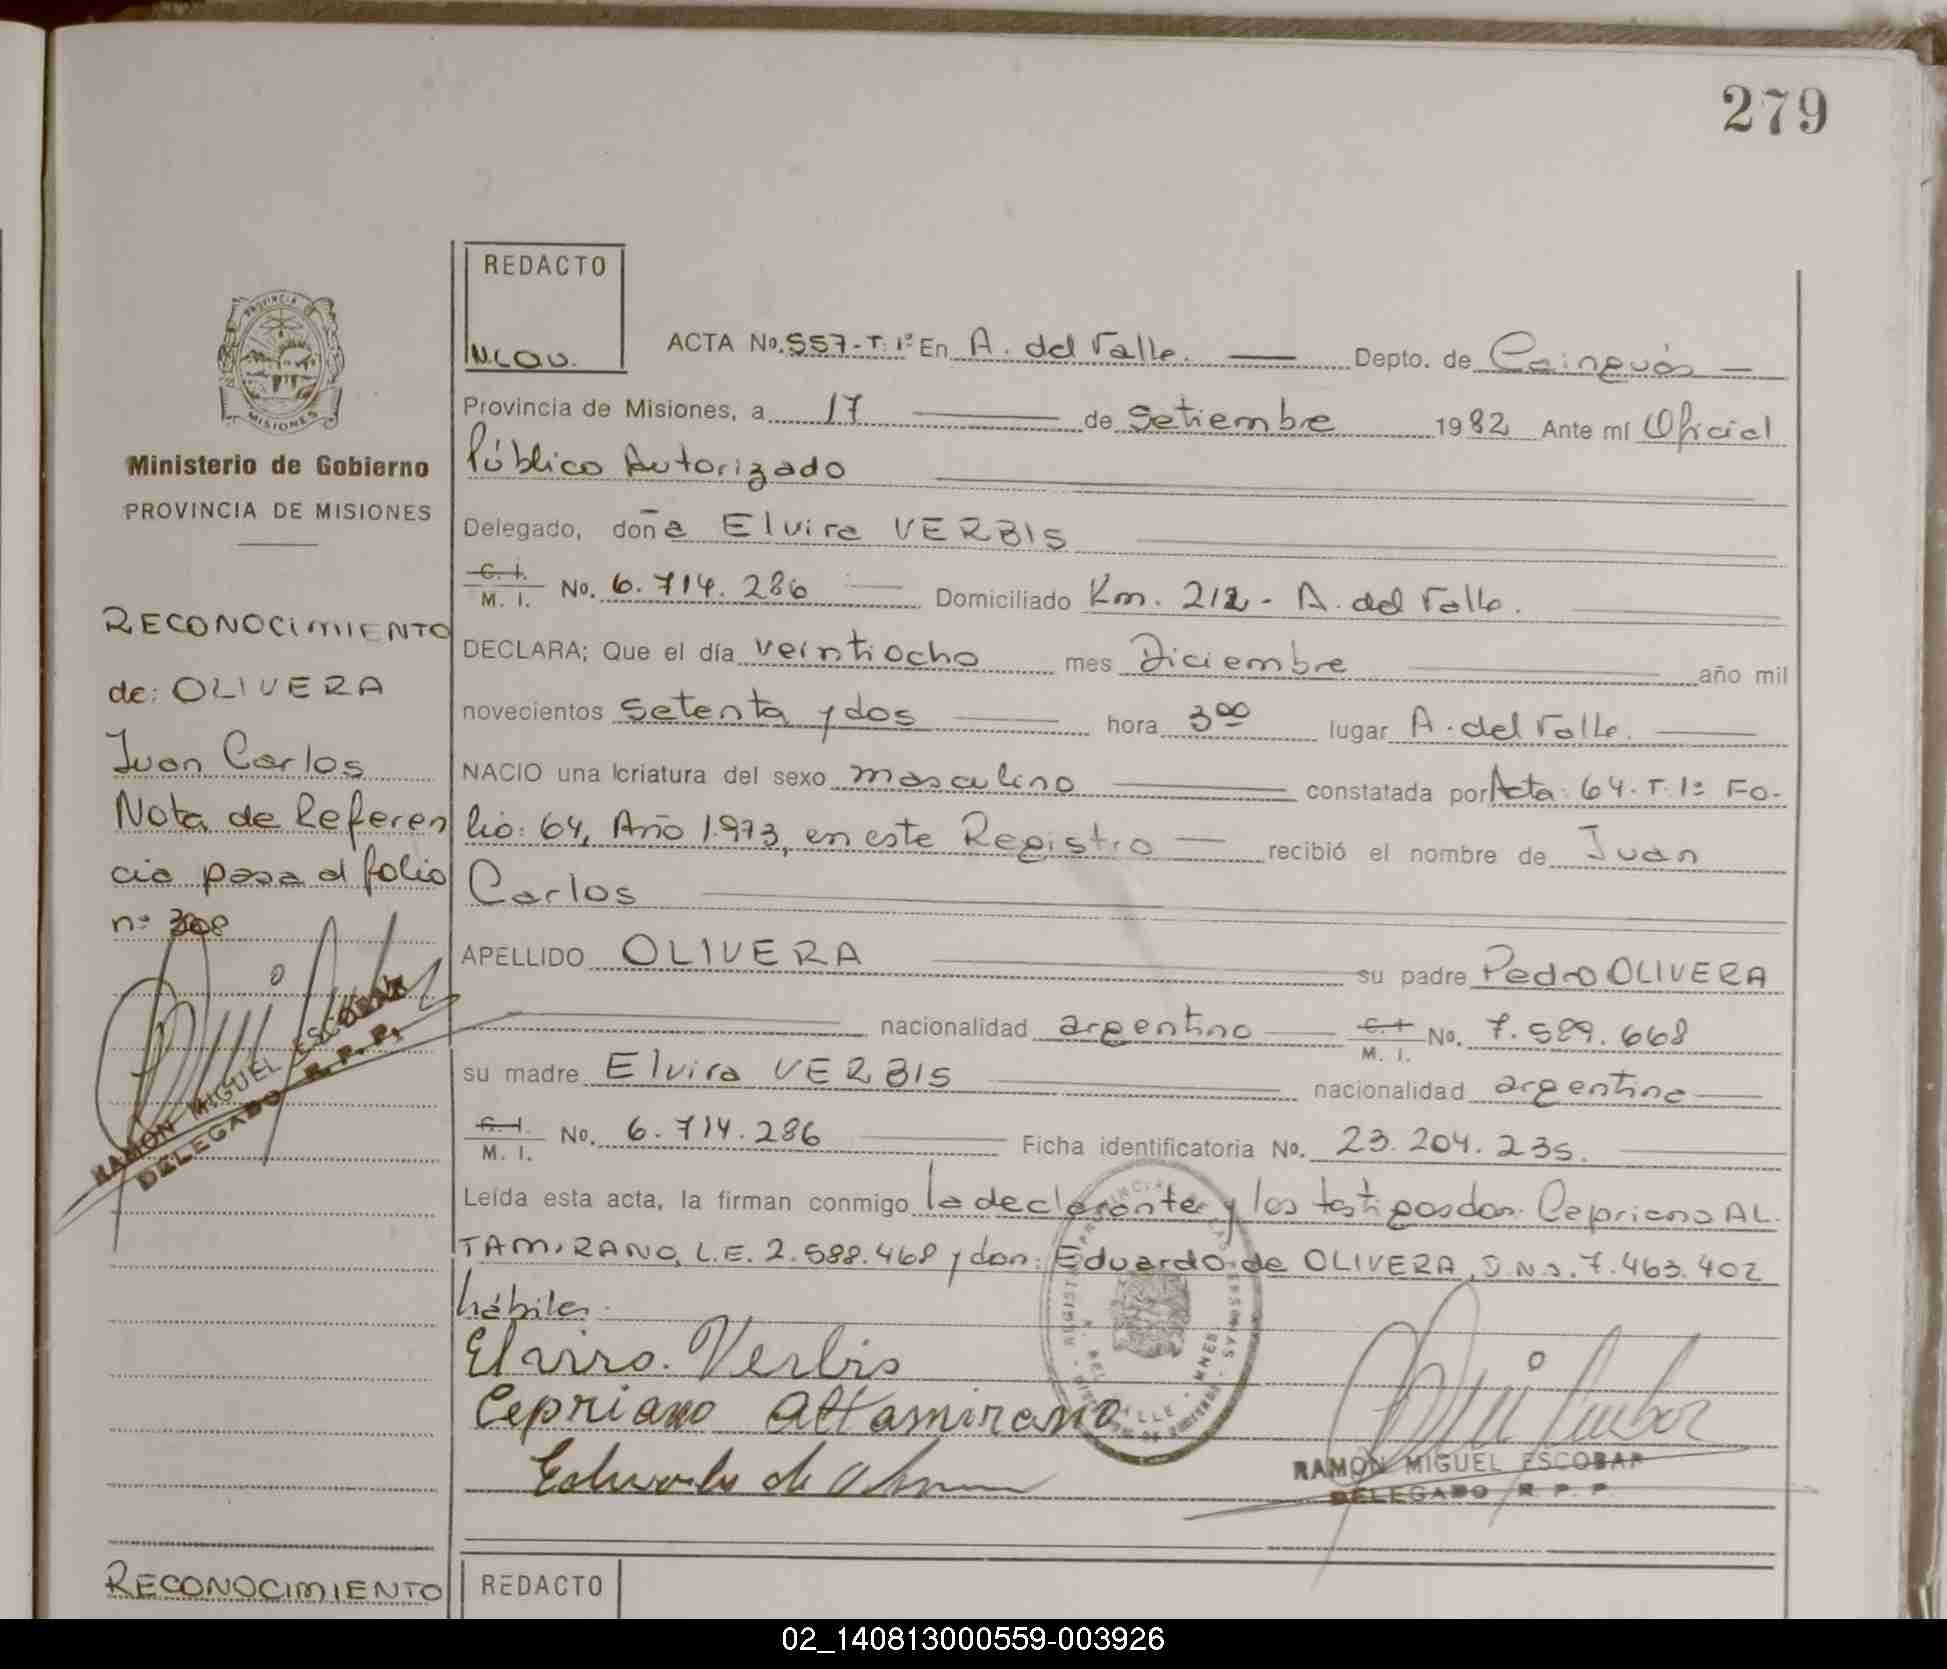 279
REDACTO
N.L.O.V.
ACTA No. 557-T. 1º En A. del Valle. Depto. de Cainguás
Provincia de Misiones, a 17 de Setiembre 1982 Ante mí Oficial
Público Autorizado
Delegado, doña Elvira VERBIS
C. I.
M. I. No. 6.714.286 Domiciliado Km. 212 - A. del Valle.
DECLARA; Que el día veintiocho mes Diciembre año mil
novecientos setenta y dos hora 3 00 lugar A. del Valle.
NACIO una criatura del sexo masculino constatada por Acta: 64. T. 1: Fo-
lio: 64, Año 1.973, en este Registro recibió el nombre de Juan
Carlos
APELLIDO OLIVERA su padre Pedro OLIVERA
nacionalidad argentino C. I.
M. I. No. 7.589.668
su madre Elvira VERBIS nacionalidad argentina
C. I.
M. I. No. 6.714.286 Ficha identificatoria No. 23.204.235.
Leída esta acta, la firman conmigo la declarante y los testigos don: Cepriano AL-
TAMIRANO, L.E. 2.588.468 y don: Eduardo de OLIVERA, D.N.I. 7.463.402
hábiles.
Elvira Verbis
Cepriano Altamirano
Eduardo de
RAMON MIGUEL ESCOBAR
DELEGADO R. P. P.
PROVINCIA DE
MISIONES
Ministerio de Gobierno
PROVINCIA DE MISIONES
RECONOCIMIENTO
de: OLIVERA
Juan Carlos
Nota de Referen
cia pasa al folio
nº 308
RAMON MIGUEL ESCOBAR
DELEGADO R. P. P.
RECONOCIMIENTO
REDACTO
02_140813000559-003926